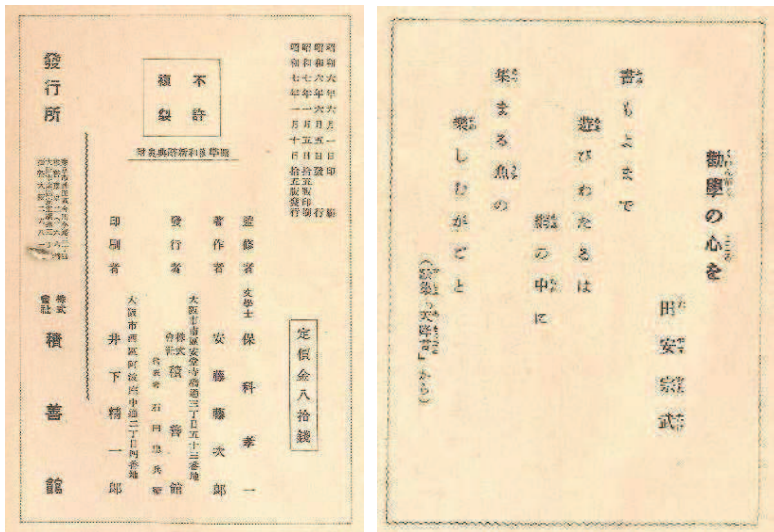 勸學の心を
田安宗武
書もよまで
遊びわたるは
網の中に
集まる魚の
樂しむがごと
(歌集「天降言」から)
昭和六年六月一日印刷
昭和六年六月五日發行
昭和七年一月五日拾五版印刷
昭和七年一月十日拾五版發行
定價金八拾錢
不許
複製
監修者 文學士 保科孝一
著作者 安藤藤次郎
大阪市南區安堂寺橋通三丁目五十三番地
發行者 株式會社 積善館
代表者 石田忠兵衞
大阪市西區阿波座中通二丁目四番地
印刷者 井下精一郎
發行所 株式會社 積善館